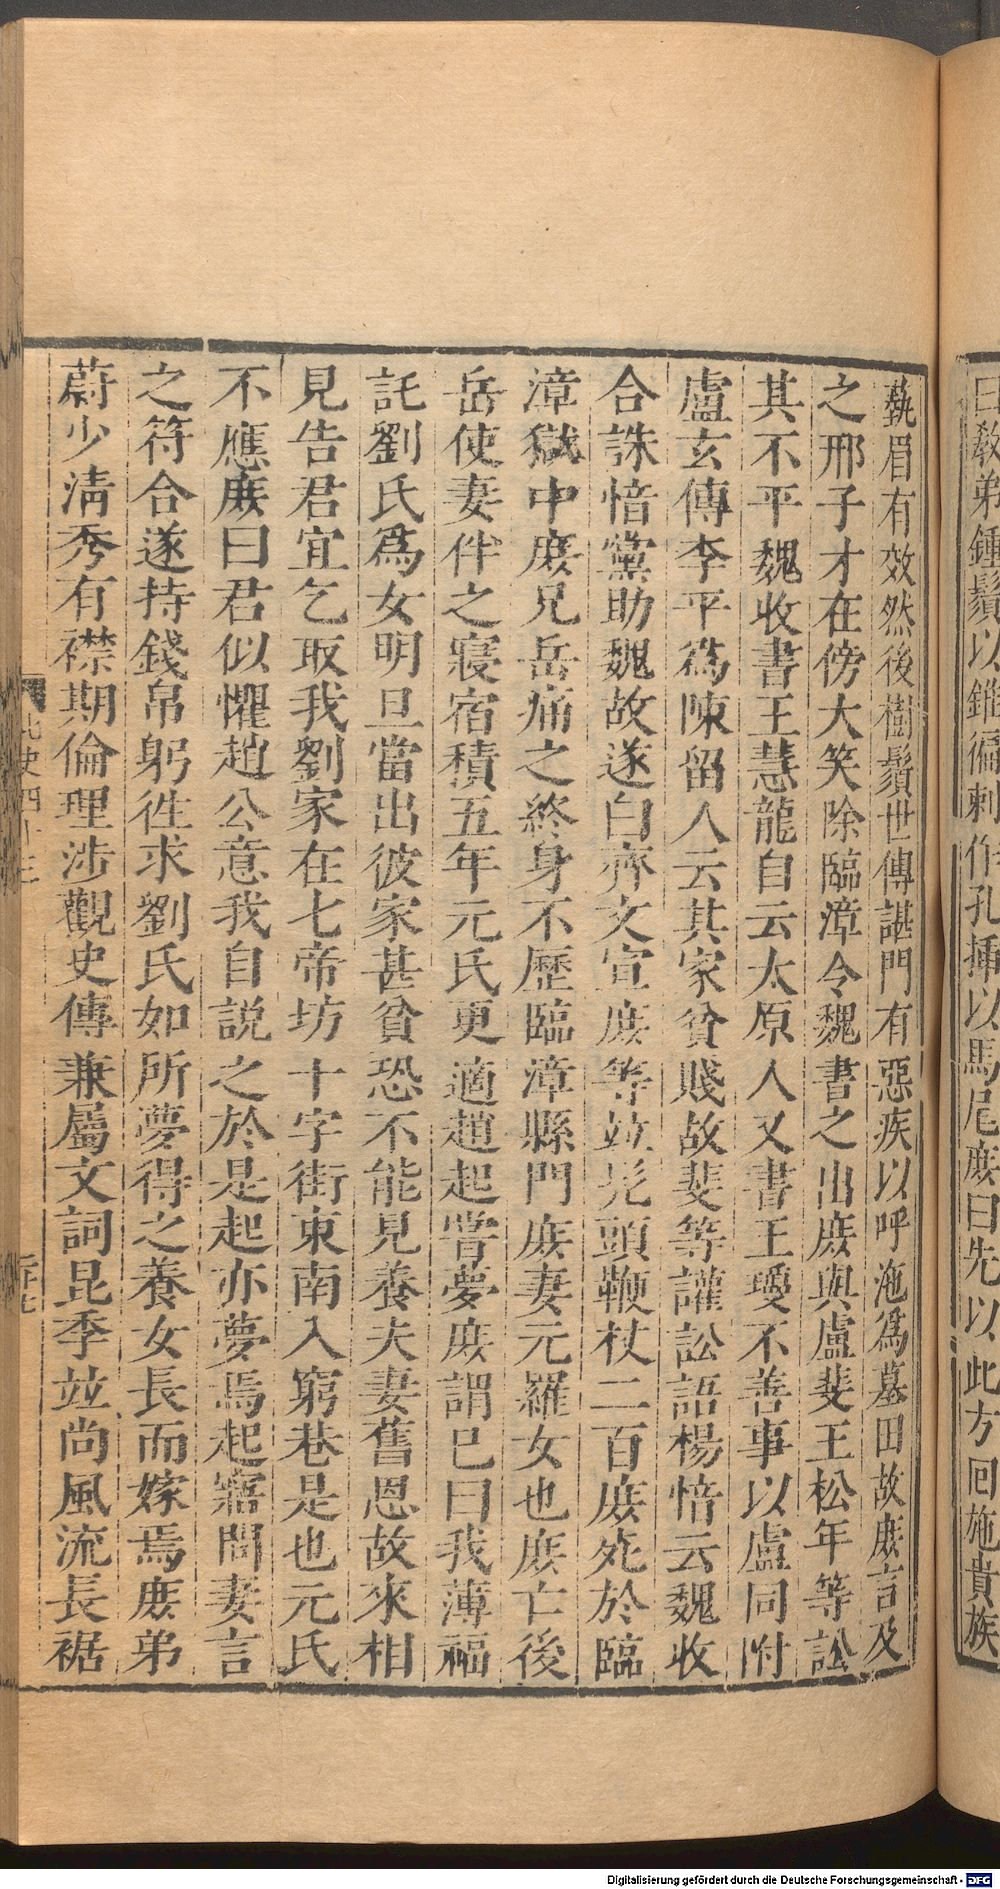 曰教弟鍾鬚以錐徧刺作孔揷以馬尾庻曰先以此方囘施貴族
藝眉有效然後樹鬚世傳諶門有惡疾以呼沲爲墓田故庻言及
之邢子才在傍大笑除臨漳令魏書之出庻與盧斐王松年等訟
其不平魏收書王慧龍自云太原人又書王瓊不善事以盧同附
盧玄傳李平爲陳留人云其家貧賤故斐等讙訟語楊愔云魏收
合誅愔黨助魏故遂白齊文宣庻等竝髠頭鞭杖二百庻死於臨
漳獄中庻兄岳痛之終身不歷臨漳縣門庻妻元羅女也庻亡後
岳使妻伴之寢宿積五年元氏更適趙起嘗夢庻謂已曰我薄福
託劉氏爲女明旦當出彼家甚貧恐不能見養夫妻舊恩故來相
見告君宜乞取我劉家在七帝坊十字街東南入窮巷是也元氏
不應庻曰君似懼趙公意我自説之於是起亦夢焉起寤問妻言
之符合遂持錢帛躬徃求劉氏如所夢得之養女長而嫁焉庻弟
蔚少淸秀有襟期倫理涉觀史傳兼屬文詞昆季竝尚風流長裾
北史四十三
Digitalisierung gefördert durch die Deutsche Forschungsgemeinschaft - DFG